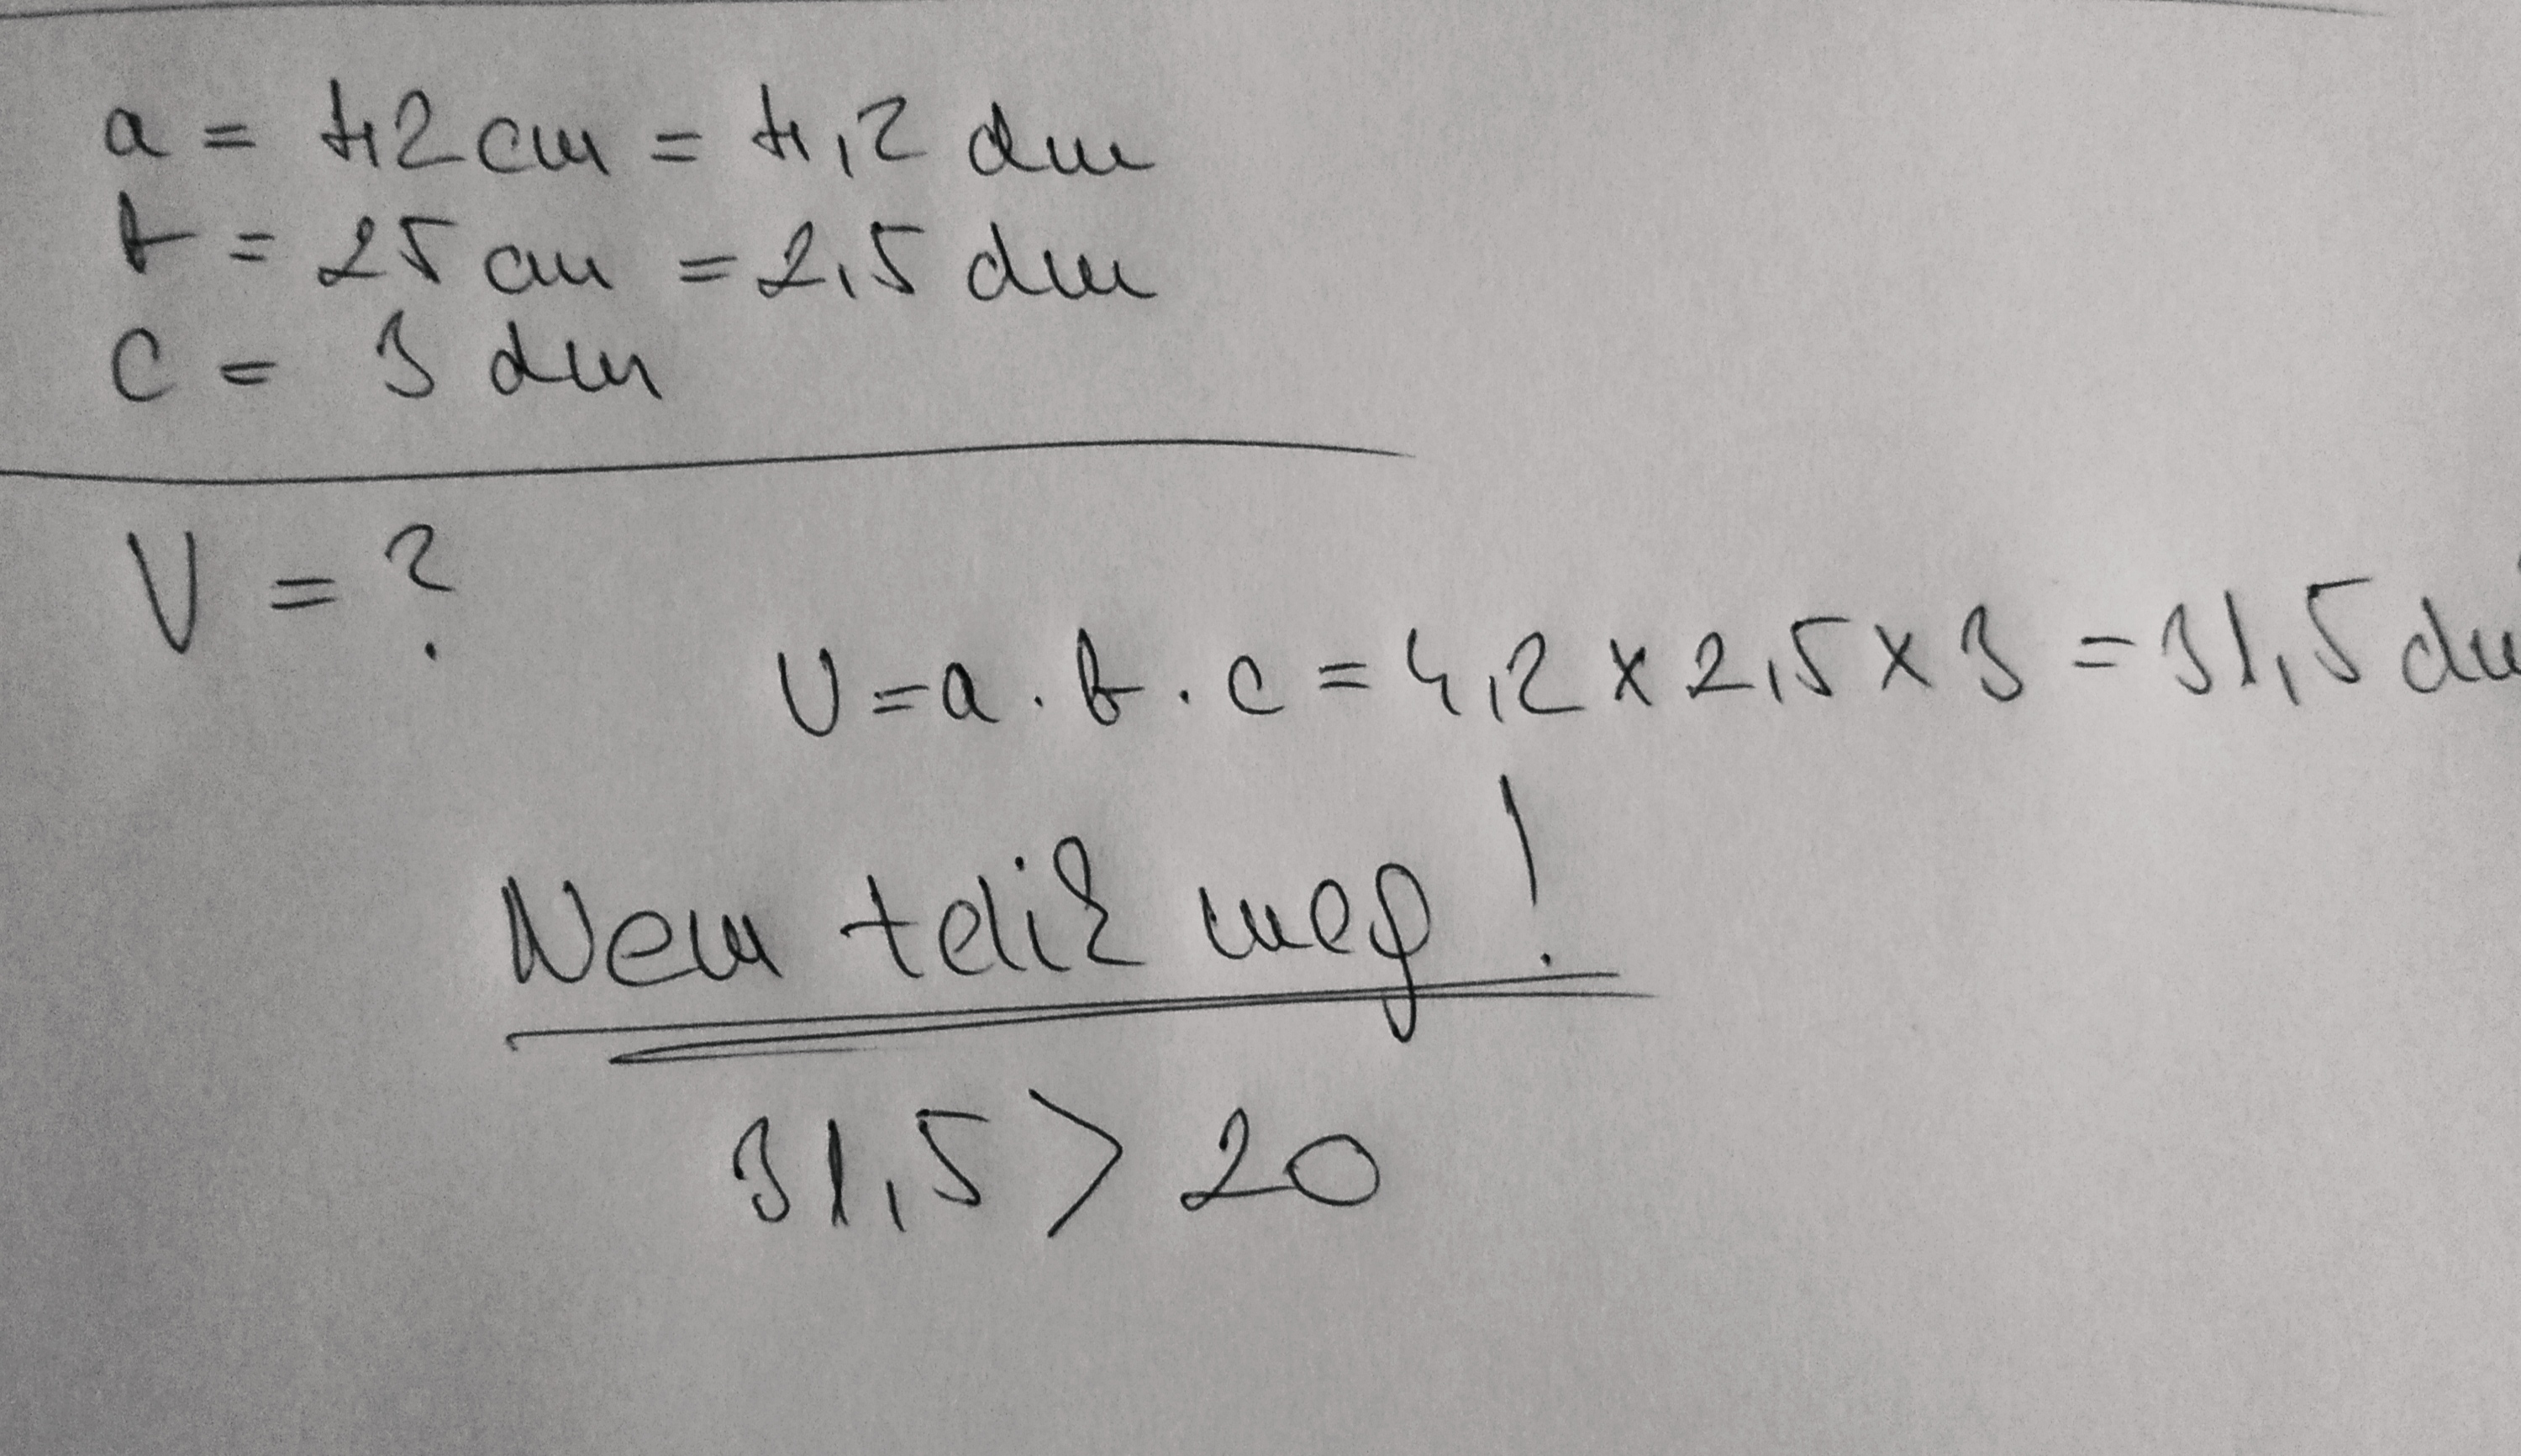 a = 42 cm = 4,2 dm
b = 25 cm = 2,5 dm
c = 3 dm
V = ?
V = a · b · c = 4,2 x 2,5 x 3 = 31,5 dm
Nem telik meg!
31,5 > 20